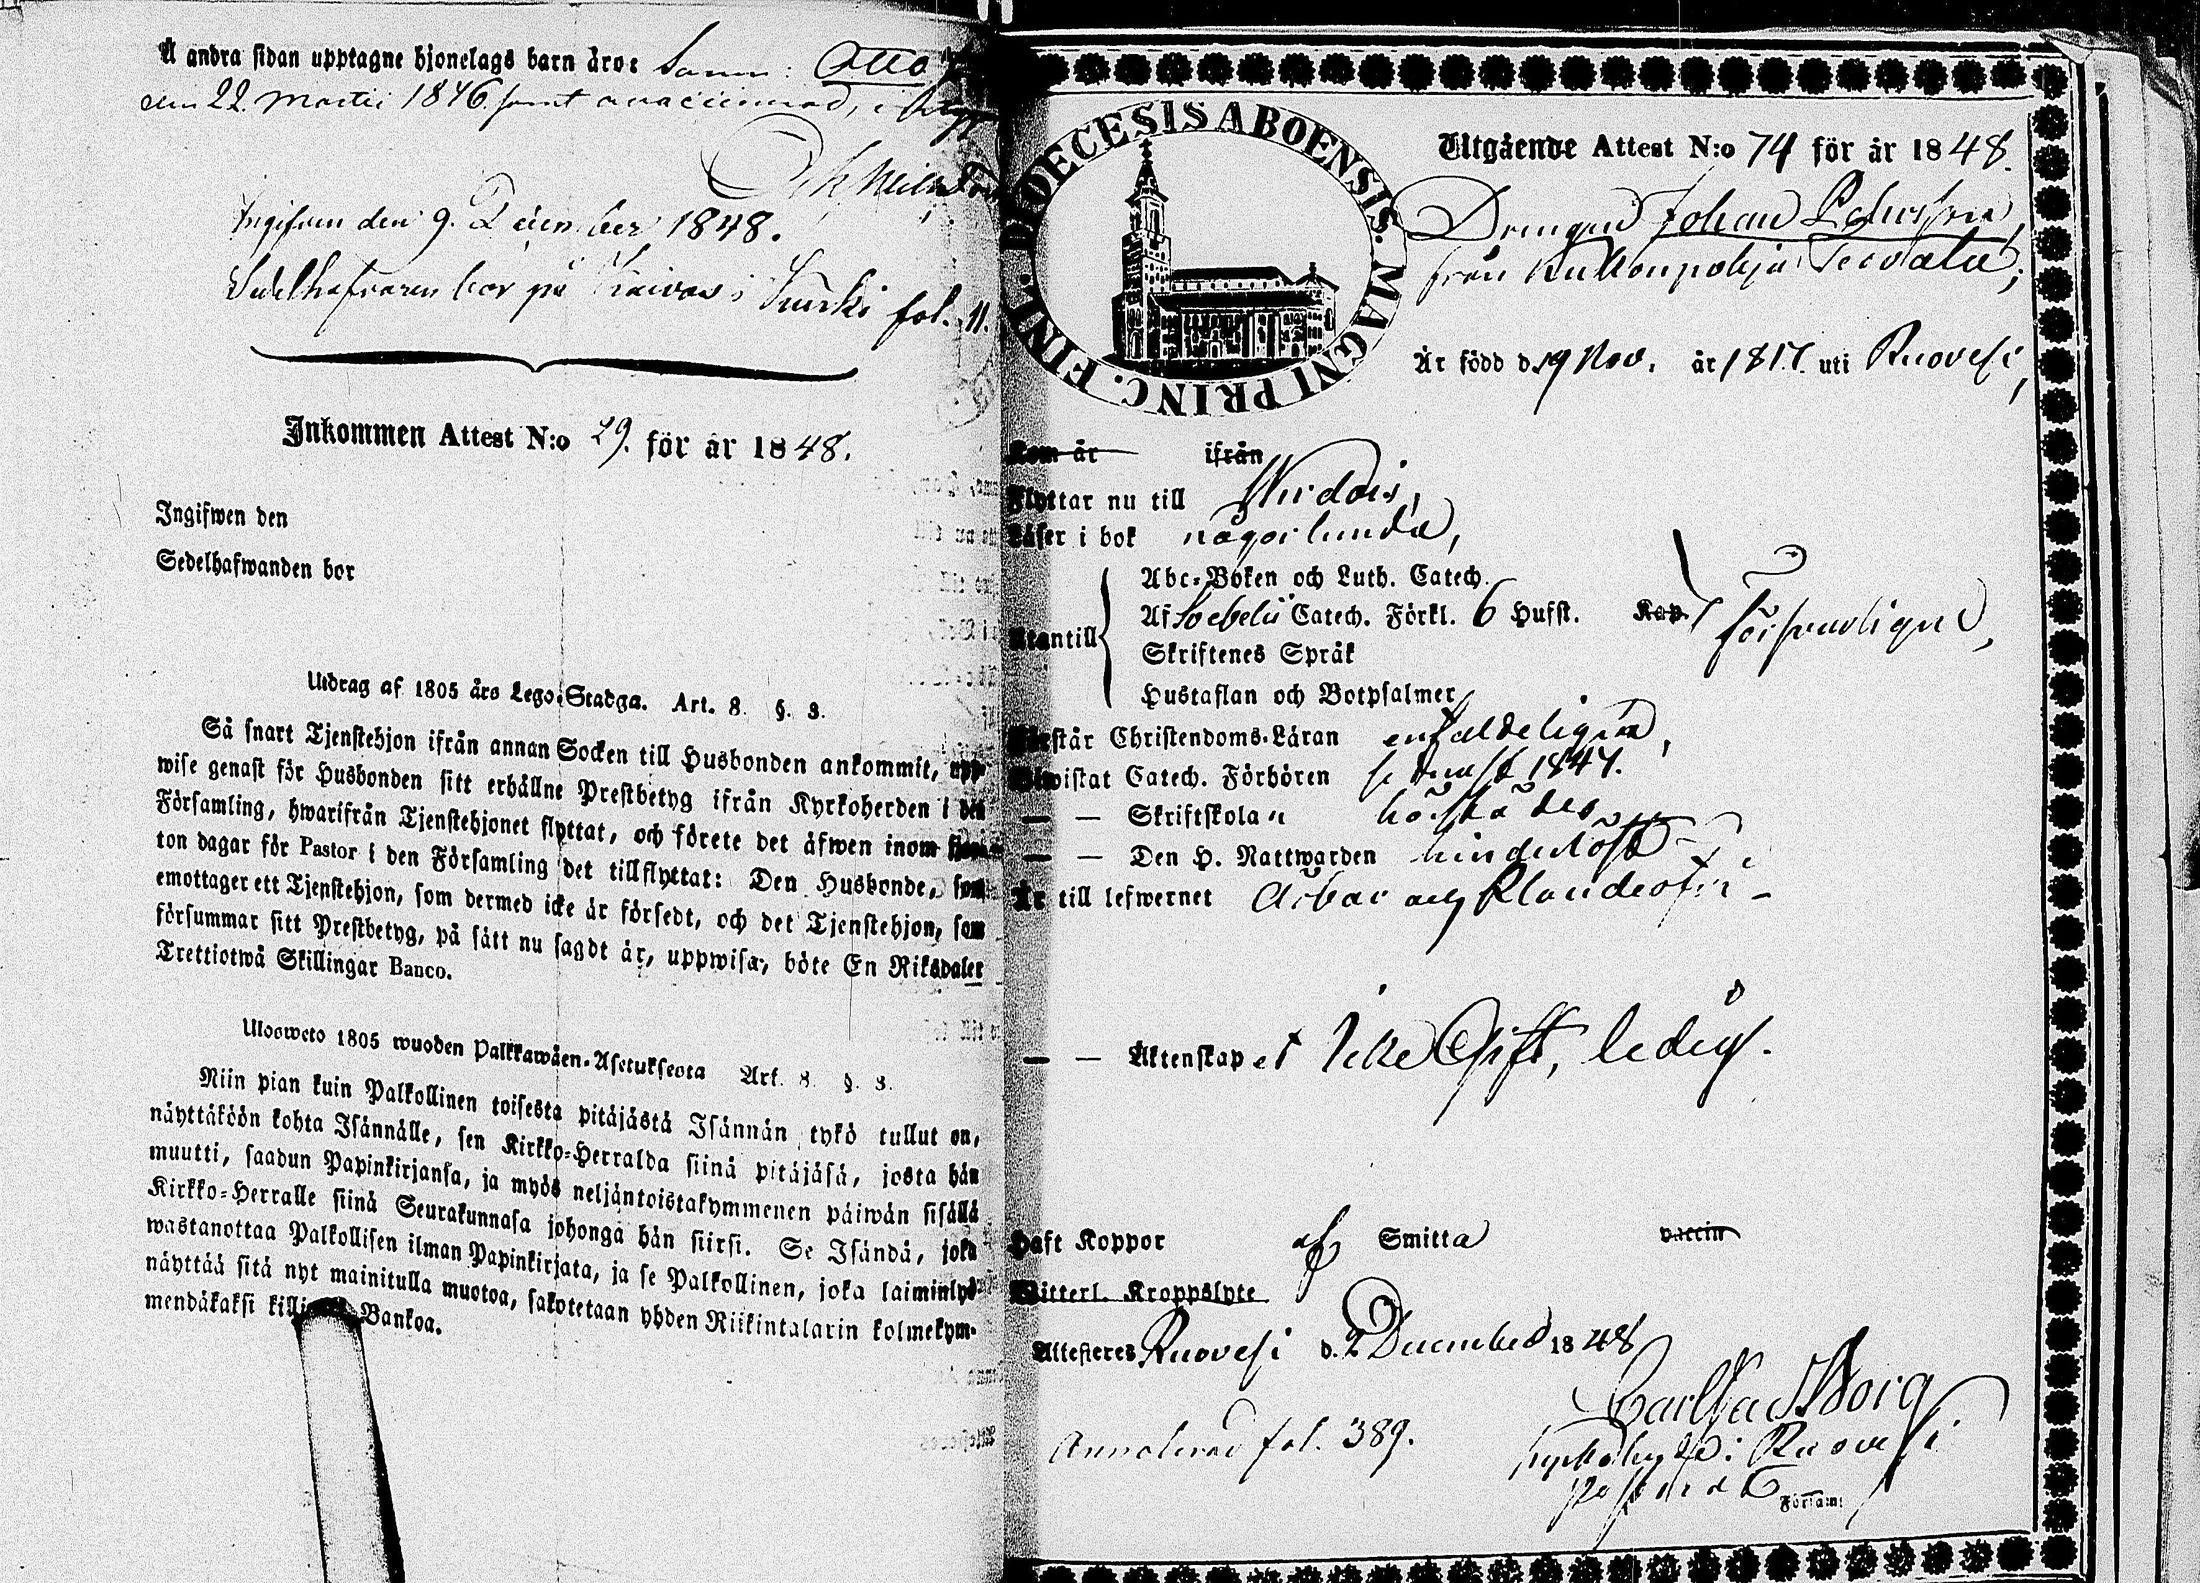 Å andra sidan upptagne hjonelags barn äro: Sonen: Otto
den 22 Martii 1846 samt
Ingifven den 9. December 1848.
Sedelhafvaren bor på i Kurki fol. 11.
Inkommen Attest N:o 29. för år 1848.
Ingifwen den
Sedelhafwanden bor
Utdrag af 1805 års Lego-Stadga. Art. 8. §. 3.
Så snart Tjenstehjon ifrån annan Socken till Husbonden ankommit, upp-
wise genast för Husbonden sitt erhållne Prestbetyg ifrån Kyrkoherden i den
Församling, hwarifrån Tjenstehjonet flyttat, och förete det äfwen inom
ton dagar för Pastor i den Församling det tillflyttat: Den Husbonde, som
emottager ett Tjenstehjon, som dermed icke är försedt, och det Tjenstehjon, som
försummar sitt Prestbetyg, på sätt nu sagdt är, uppwisa, böte En Riksdaler
Trettiotwå Skillingar Banco.
Ulosweto 1805 wuoden Palkkawäen-Asetuksesta Art. 8. §. 3.
Niin pian kuin Palkollinen toisesta pitäjästä Isännän tykö tullut on,
näyttäköön kohta Isännälle, sen Kirkko-Herralda siinä pitäjäsä, josta hän
muutti, saadun Papinkirjansa, ja myös neljäntoistakymmenen päiwän sisällä
Kirkko-Herralle siinä Seurakunnasa johonga hän siirsi. Se Isändä, joka
wastanottaa Palkollisen ilman Papinkirjata, ja se Palkollinen, joka laiminlyö
näyttää sitä nyt mainitulla muotoa, sakotetaan yhden Riikintalarin kolmekym-
mendäkaksi Bankoa.
DIOECESIS ABOENSIS. MAGNI PRINC. FINL.
Utgående Attest N:o 74 för år 1848.
Drengen Johan
från
Är född d. 19 Nov. år 1817. uti Ruovesi,
Kom år ifrån
Flyttar nu till Wirdois,
Läser i bok någorlunda,
Abc-Boken och Luth. Catech.
Af Catech. Förkl. 6 Hufst. Kap.
Utantill
försvarligen,
Skriftenes Språk
Hustaflan och Botpsalmer
Förstår Christendoms-Läran enfaldeligen,
Biwistat Catech. Förhören sednast 1847.
— — Skriftskolan
— — Den H. Nattwarden
Är till lefwernet ärbar och klanderfri
— — Äktenskapet Icke Gift, ledig.
Haft Koppor af Smitta vaccin
Witterl. Kroppslyte
Attesteres Ruovesi d. 2 December 1848
Annoterad fol. 389.
Ruovesi
Församl.